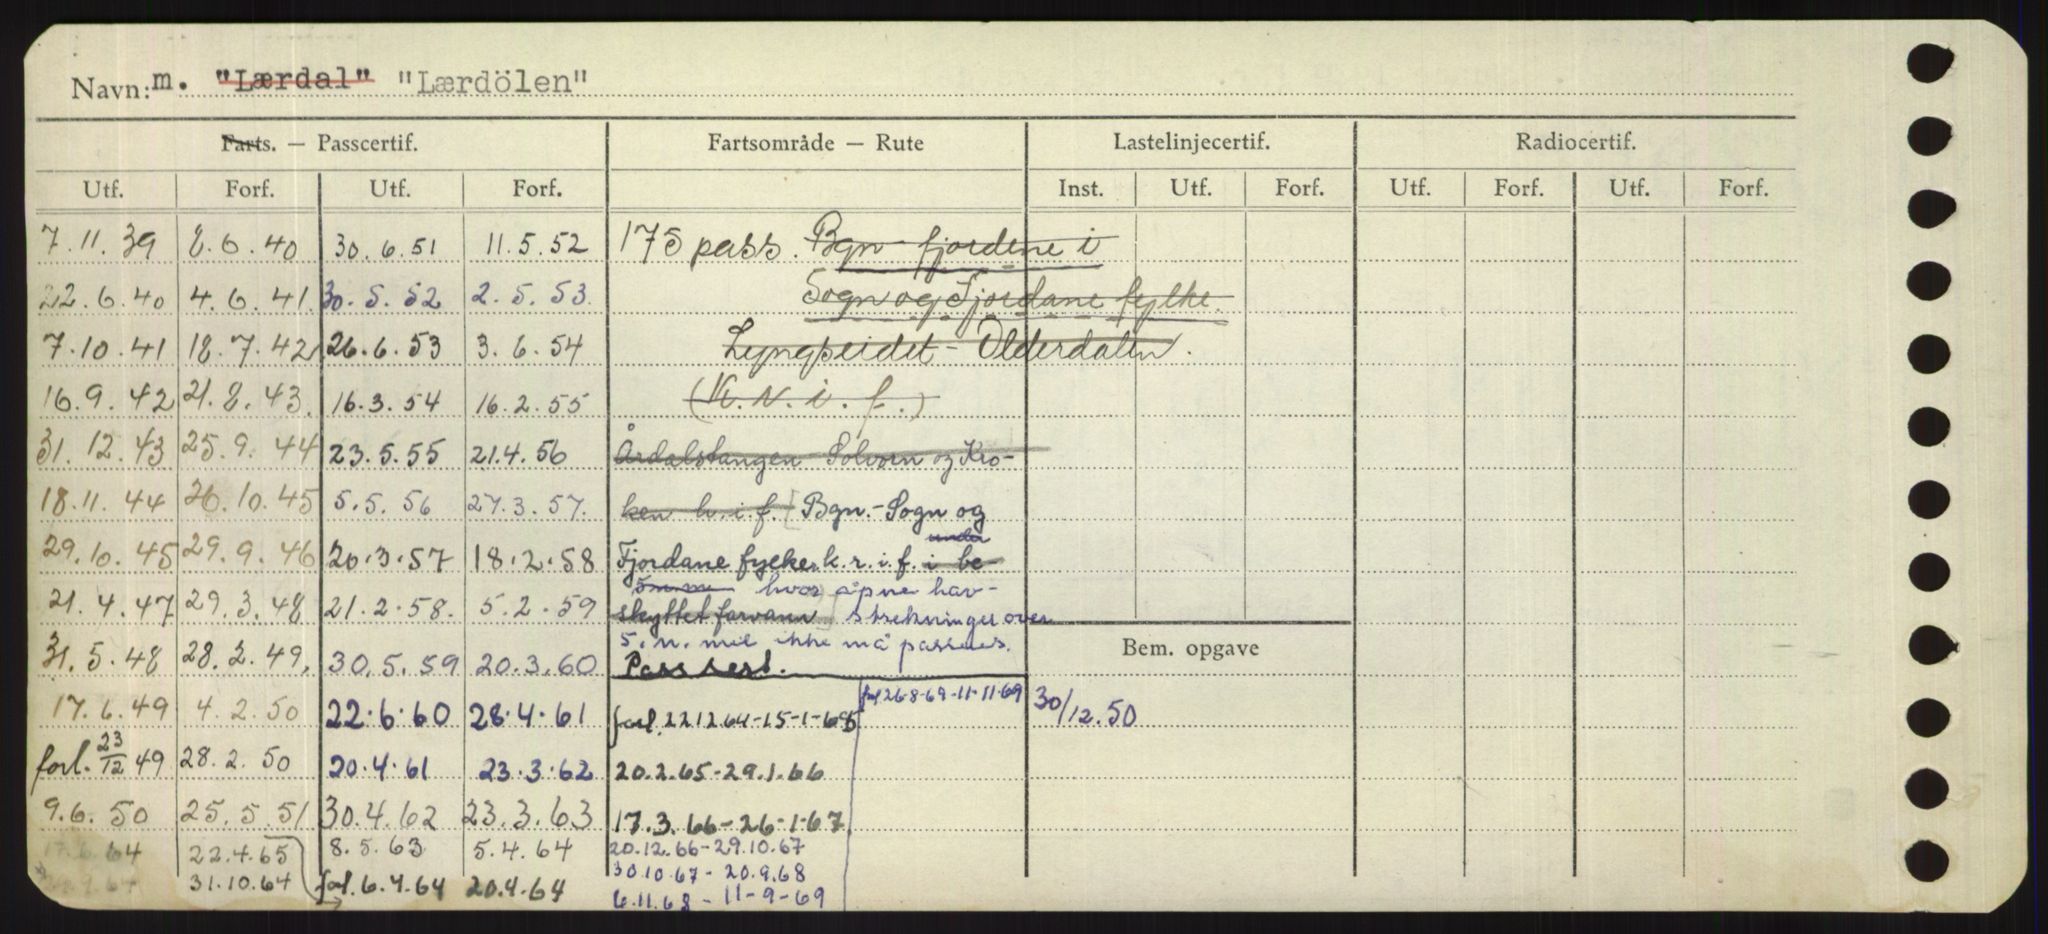 Navn: m. "Lærdal" "Lærdölen"
Farts. — Passcertif. Fartsområde — Rute Lastelinjecertif. Radiocertif.
Utf. Forf. Utf. Forf. Inst. Utf. Forf. Utf. Forf. Utf. Forf.
7.11.39 8.6.40 30.6.51 11.5.52 175 pass. Bgn - fjordene i
22.6.40 4.6.41. 30.5.52 2.5.53. Sogn og Fjordane fylke.
7.10.41 18.7.42 26.6.53 3.6.54 Lyngseidet - Olderdalen.
16.9.42 21.8.43. 16.3.54 16.2.55 (K.N.i.f.)
31.12.43 25.9.44 23.5.55 21.4.56 Årdalstangen Solvorn og Kro-
18.11.44 26.10.45 5.5.56 27.3.57. ken h.i.f. Bgn.- Sogn og
under
29.10.45 29.9.46 20.3.57 18.2.58 Fjordane fylker k.r.i.f. i be-
hvor åpne hav-
21.4.47 29.3.48 21.2.58. 5.2.59 skyttet farvann strekninger over
5. n. mil ikke må passeres.
31.5.48 28.2.49. 30.5.59 20.3.60 Pass sert. Bem. opgave
forl 26-8-69-11-11-69
17.6.49 4.2.50 22.6.60 28.4.61 forl. 22.12.64-15-1-65 30/12.50
forl. 23/12 49 28.2.50 20.4.61 23.3.62 20.2.65-29.1.66
9.6.50 25.5.51 30.4.62 23.3.63 17.3.66-26-1-67
17.6.64 22.4.65 8.5.63 5.4.64 20.12.66-29.10.67
30.10.67 - 20.9.68
31.10.64 forl. 6.4.64 20.4.64
6.11.68 - 11-9-69